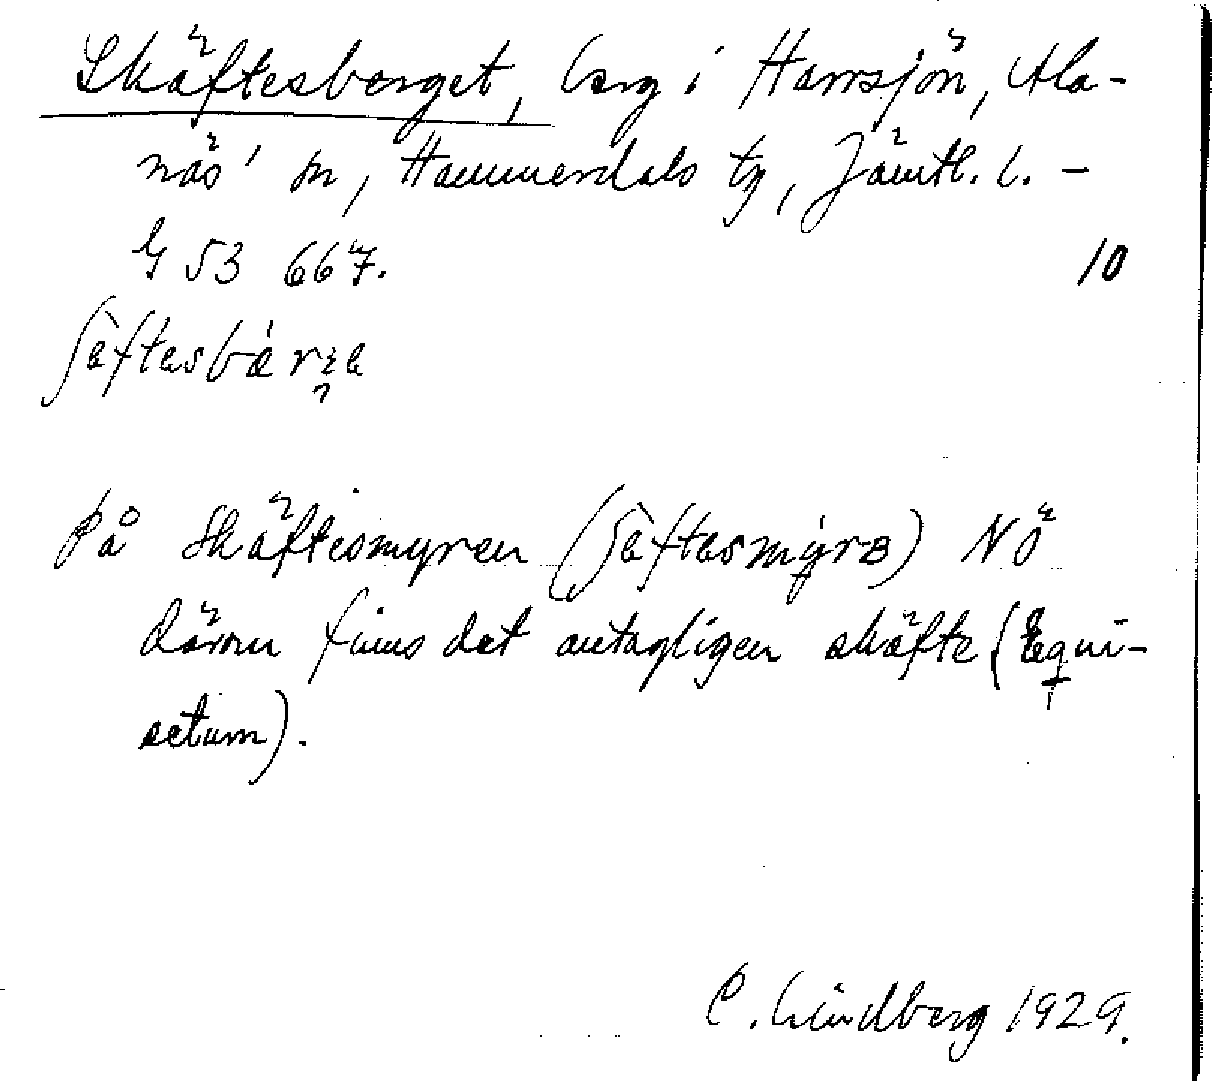 Skäftesberget, berg i Harrsjön, Ala-
näs' sn, Hammerdals tg, Jämtl. l. –
G 53 667. 10
ʃèftesbær
På Skäftesmyren (ʃèftesmýra) NÖ
därom finns det antagligen skäfte (Equi-
setum).
C. Lindberg 1929.